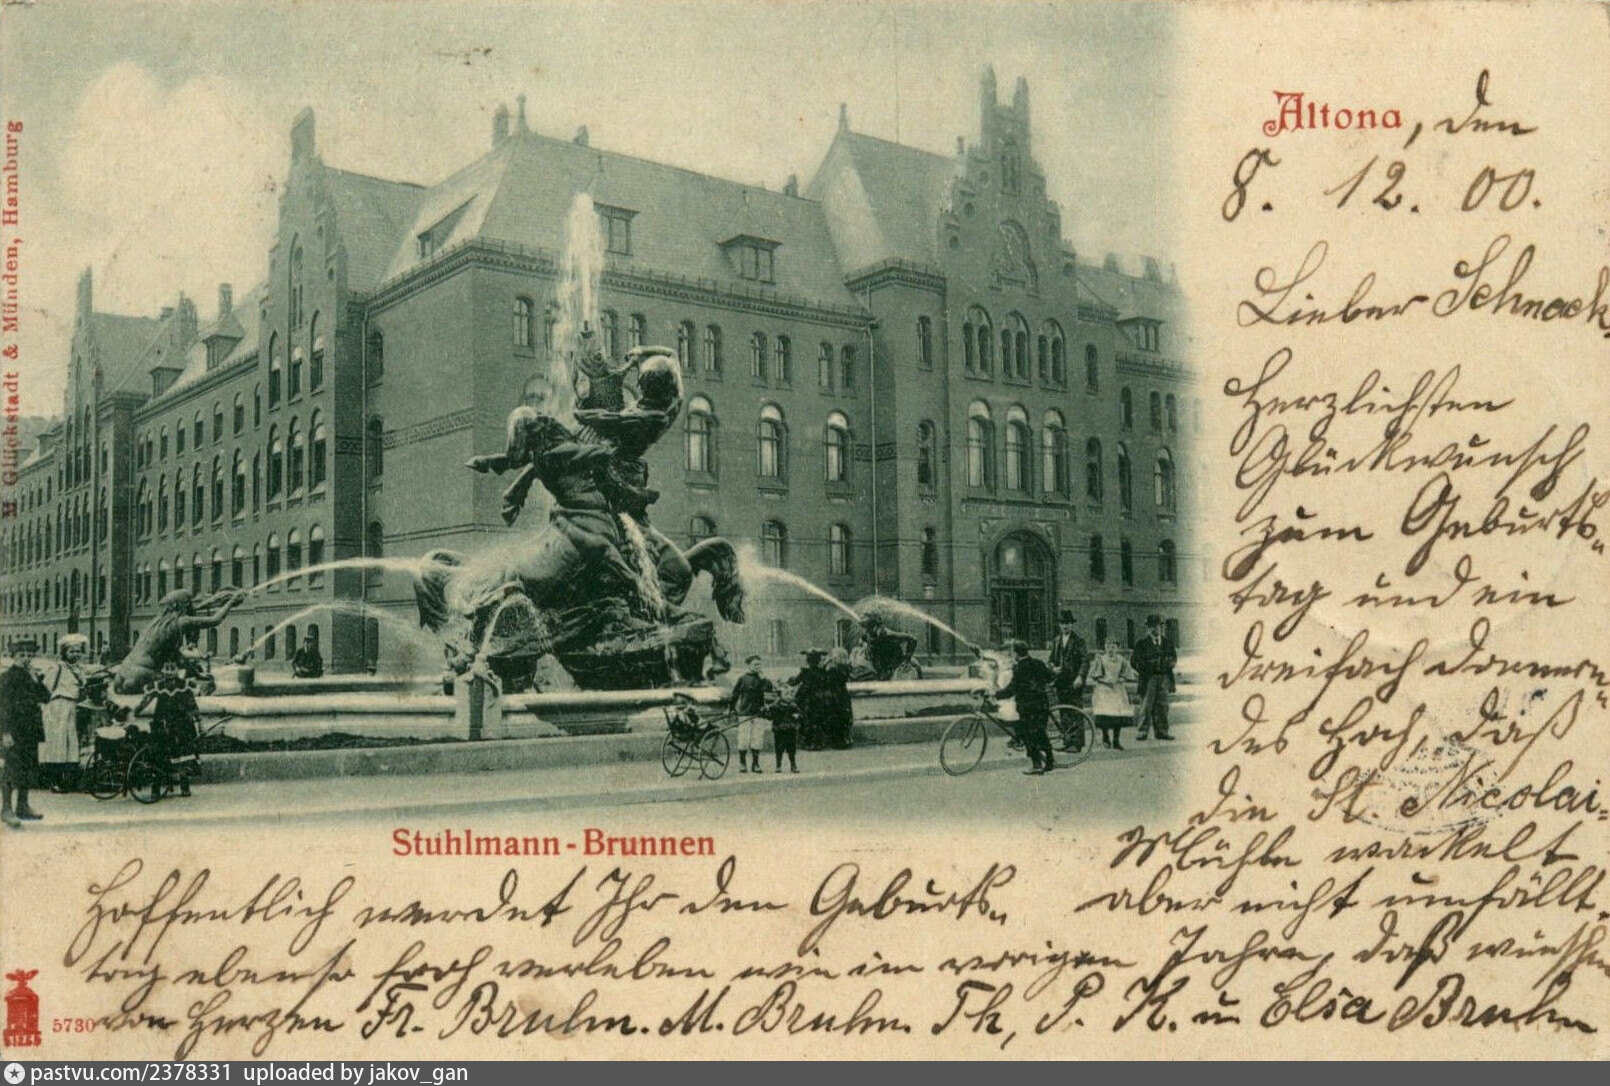 M Glückstadt & Münden, Hamburg
Altona, den
8. 12. 00.
Lieber Schnack,
Herzlichsten
Glückwunsch
zum Geburts-
tag und ein
dreifach donnern-
des Hoch, daß
die St. Nicolai-
Mühle wackelt
aber nicht umfällt.
Stuhlmann-Brunnen
Hoffentlich werdet Ihr den Geburts-
tag ebenso froh verleben wie im vorigen Jahre, daß wünschen
von Herzen Fr. Bruhn. M. Bruhn. Th, P. K. u. Elsa Bruhn
5730
pastvu.com/2378331 uploaded by jakov_gan